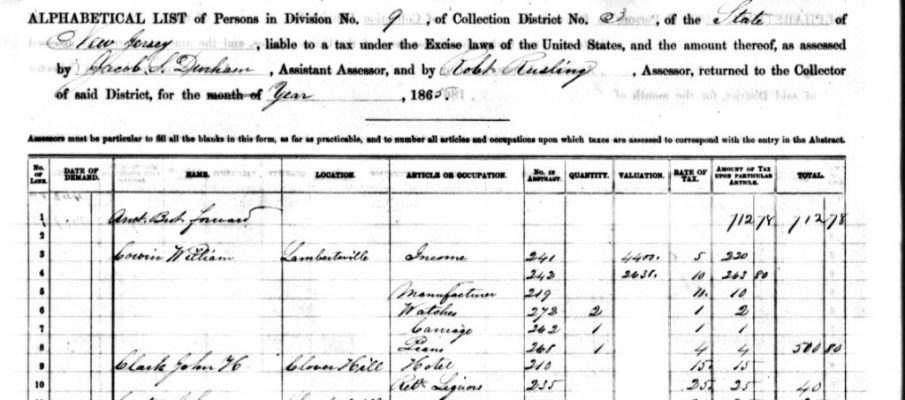 ALPHABETICAL LIST of Persons in Division No. 9, of Collection District No. 3, of the State of
New Jersey, liable to a tax under the Excise laws of the United States, and the amount thereof, as assessed
by Jacob S. Durham, Assistant Assessor, and by Robt Rusling, Assessor, returned to the Collector
of said District, for the month of Year, 1865.
Assessors must be particular to fill all the blanks in this form, as far as practicable, and to number all articles and occupations upon which taxes are assessed to correspond with the entry in the Abstract.
No. of Line. DATE OF DEMAND. NAME. LOCATION. ARTICLE OR OCCUPATION. No. in Abstract. QUANTITY. VALUATION. RATE OF TAX. AMOUNT OF TAX UPON PARTICULAR ARTICLE. TOTAL.
1 Amt. Brt. forward 712 78 712 78
2
3 Cowin William Lambertville Income 241 4400. 5 220
4 242 2638. 10 263 80
5 Manufacturer 219 10. 10
6 Watches 273 2 1 2
7 Carriage 262 1 1 1
8 Piano 268 1 4 4 500 80
9 Clark John H Clover Hill Hotel 210 15. 15
10 Ret. Liquors 235 25. 25 40